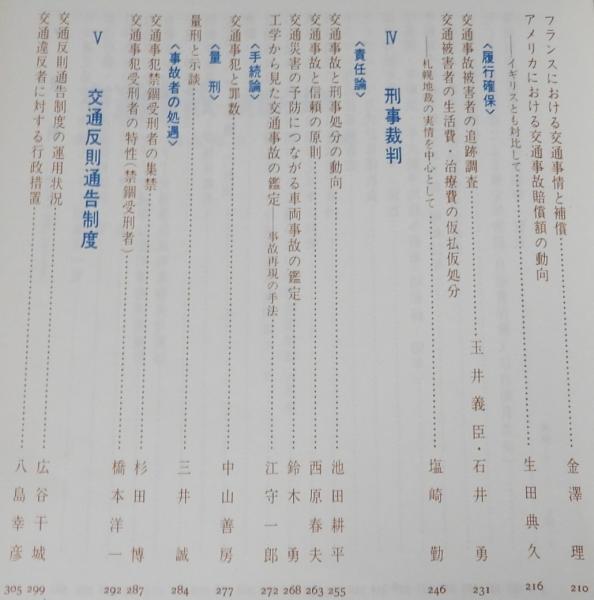 フランスにおける交通事情と補償……金澤 理 210
アメリカにおける交通事故賠償額の動向
――イギリスとも対比して……生田典久 216
〈履行確保〉
交通事故被害者の追跡調査……玉井義臣・石井 勇 231
交通被害者の生活費・治療費の仮払仮処分
――札幌地裁の実情を中心として……塩崎 勤 246
Ⅳ 刑事裁判
〈責任論〉
交通事故と刑事処分の動向……池田耕平 255
交通事故と信頼の原則……西原春夫 263
交通災害の予防につながる車両事故の鑑定……鈴木 勇 268
工学から見た交通事故の鑑定――事故再現の手法……江守一郎 272
〈手続論〉
交通事犯と罪数……中山善房 277
〈量 刑〉
量刑と示談……三井 誠 284
〈事故者の処遇〉
交通事犯禁錮受刑者の集禁……杉田 博 287
交通事犯受刑者の特性(禁錮受刑者)……橋本洋一 292
Ⅴ 交通反則通告制度
交通反則通告制度の運用状況……広谷干城 299
交通違反者に対する行政措置……八島幸彦 305